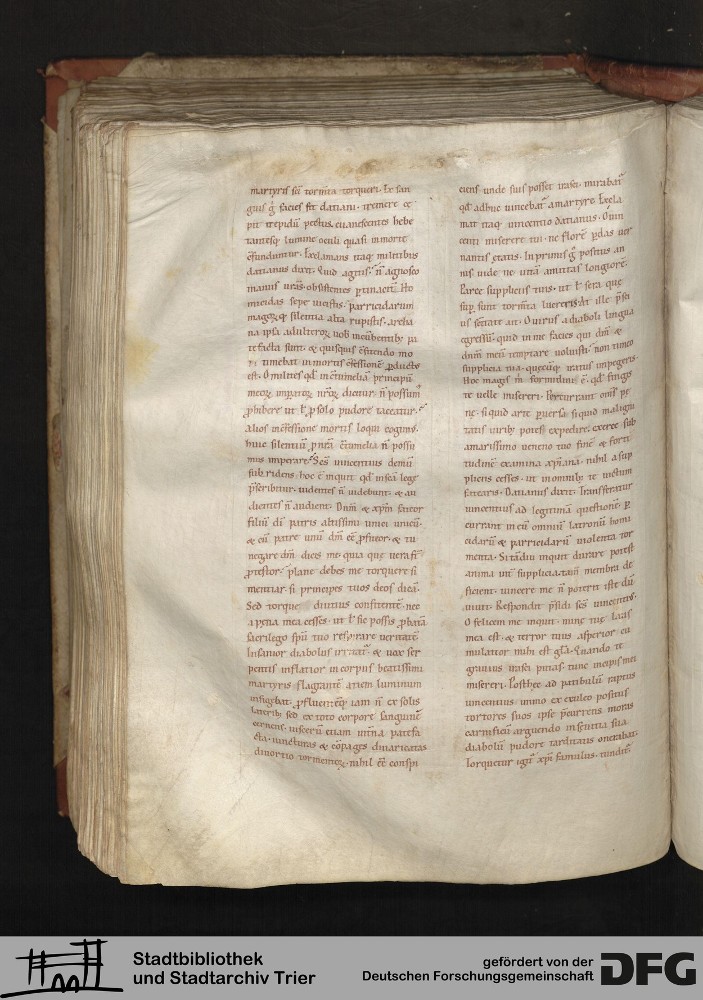 martyris sci tormta torqueri. Ex san
guis g facies fit datiani. tremere ce
pit trepidu pectus. euanescentes hebe
tantesq; lumine oculi quasi in morte
effunduntur. Exclamans itaq; militibus
datianus dixit. Quid agitis. n agnosco
manus uras. obsistentes ptinacit. Ho
micidas sepe uicistis. parricidarum
magoz q silentia alta rupistis. archa
na ipsa adulteroz
tefacta sunt. & quisquis
timebat in mortis cfessione
est. O milites qd in ctumelia principu
meoz impatoz uroz dicitur. n possum
phibere ut t psolo pudore taceatur.
alios in cfessione mortis loqui cogimus.
huic silentiu ctumelia n possu
mus imperare. Scs uincentius demu
subridens. hoc e inquit qd insca lege
pscribitur. uidentes n uidebunt. & au
dientes n audient. Dnm & xpm fateor
filiu di patris altissimi unici unicu.
& cu patre unu dm ee pfiteor. & tu
negare dm dicis me. quia que uera st
ptestor. plane debes me torquere si
mentiar. si principes tuos deos dica.
Sed torque diutius confitente. nec
a pena mea cesses. ut t sic possis pbata
sacrilego spu tuo respirare ueritate.
Insanior diabolus irritat. & uox ser
pentis inflatior in corpus beatissimi
martyris flagante aciem luminum
infigebat. pfluente q; iam n ex solis
laterib; sed ex toto corpore sanguine
uisceru etiam interna patefa
cta. iuncturas & copages diuaricatas
diuortio tormentoz. nihil ee conspi
ciens unde suis posset irasci. mirabat
qd adhuc uincebat a martyre. Excla
mat itaq; uincentio datianus. Ouin
centi miserere tui. ne flore pdas uer
nantis etatis. In primis g positus an
nis uide ne uita amittas longiore.
Parce suppliciis tuis. ut t sera que
sup sunt tormta lucreris. At ille psci
us setiate ait. O uirus a diaboli lingua
egressu. quid in me facies qui dm &
dnm meu temptare uoluisti. non timeo
supplicia tua. quecuq; iratus impegeris.
Hoc magis m formidini e. qd fingis
te uelle misereri. Percurrant oms pe
ne. si quid arte puersa. si quid maligni
tatis uirib; potes expedire. exerce sub
amarissimo ueneno tuo fine & forti
tudine examina xpiana. nihil a sup
pliciis cesses. ut in omnib; te uictum
fatearis. Datianus dixit. Transferatur
uincentius ad legitima questione. p
currant in eu omniu latronu homi
cidaru & parricidaru uiolenta tor
menta. Si tadiu inquit durare potest
anima int supplicia. tam membra de
ficient. uincere me n poterit iste du
uiuit. Respondit psidi scs uincentius.
O felicem me inquit. nunc tue laus
mea est. & terror tuus asperior. cu
mulatior mihi est gla. Quando te
grauius irasci putas. tunc incipis mei
misereri. Posthec ad patibulu raptus
uincentius. immo ex eculeo positus
tortores suos ipse pcurrens moras
carnificu arguendo insentia sua.
diabolu pudore tarditatis onerabat.
Torquetur igit xpi famulus. tundit.
Stadtbibliothek
und Stadtarchiv Trier
gefördert von der
Deutschen Forschungsgemeinschaft
DFG